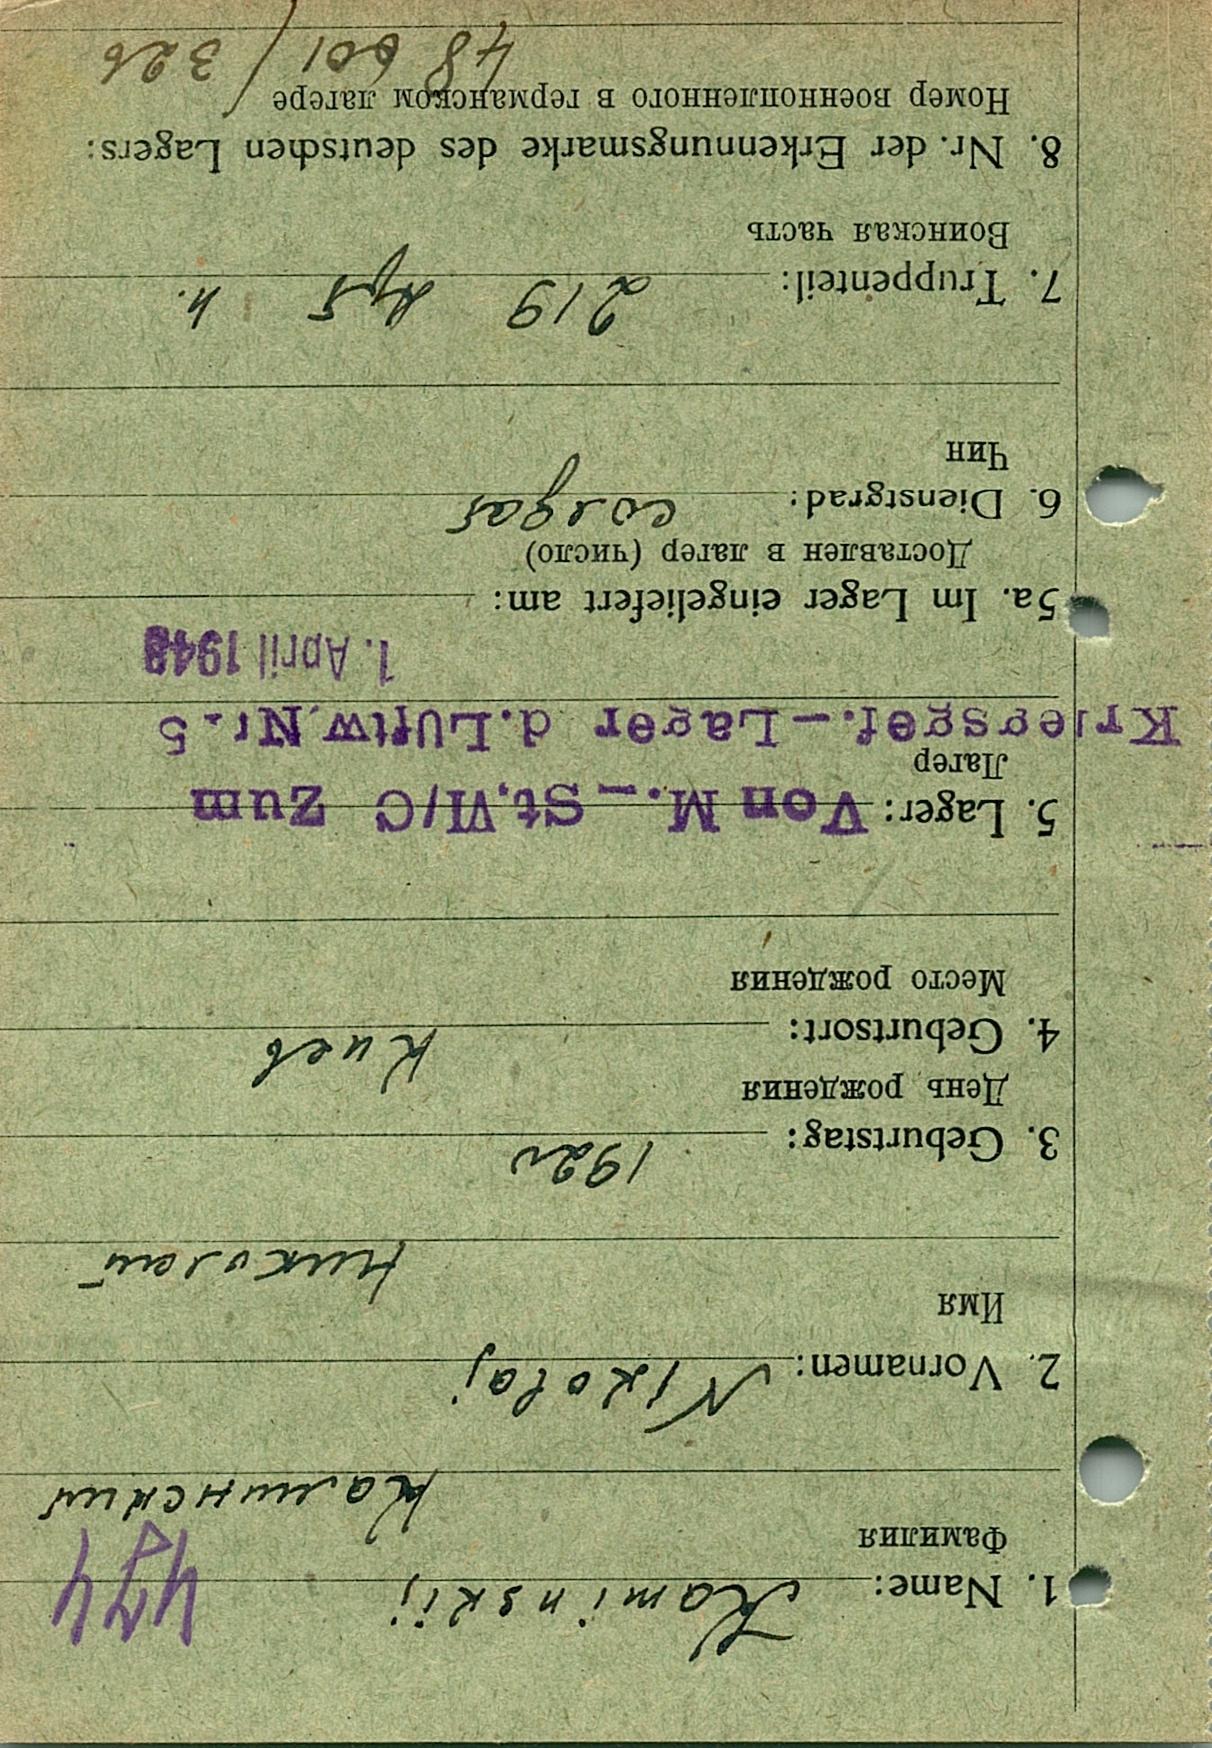 474
1. Name: Kaminskij
Фамилия
Каминский
2. Vornamen: Nikołaj
Имя
Николай
3. Geburtstag: 1920
День рождения
4. Geburtsort: Киев
Место рождения
5. Lager: Von M.-St.VI/C zum
Лагер
Kriegsgef.-Lager d.Luftw.Nr.5
1. April 1943
5a. Im Lager eingeliefert am:
Доставлен в лагер (число)
6. Dienstgrad: солдат
Чин
7. Truppenteil: 219 п.
Воинская часть
8. Nr. der Erkennungsmarke des deutschen Lagers:
Номер военнопленного в германском лагере
48601/326